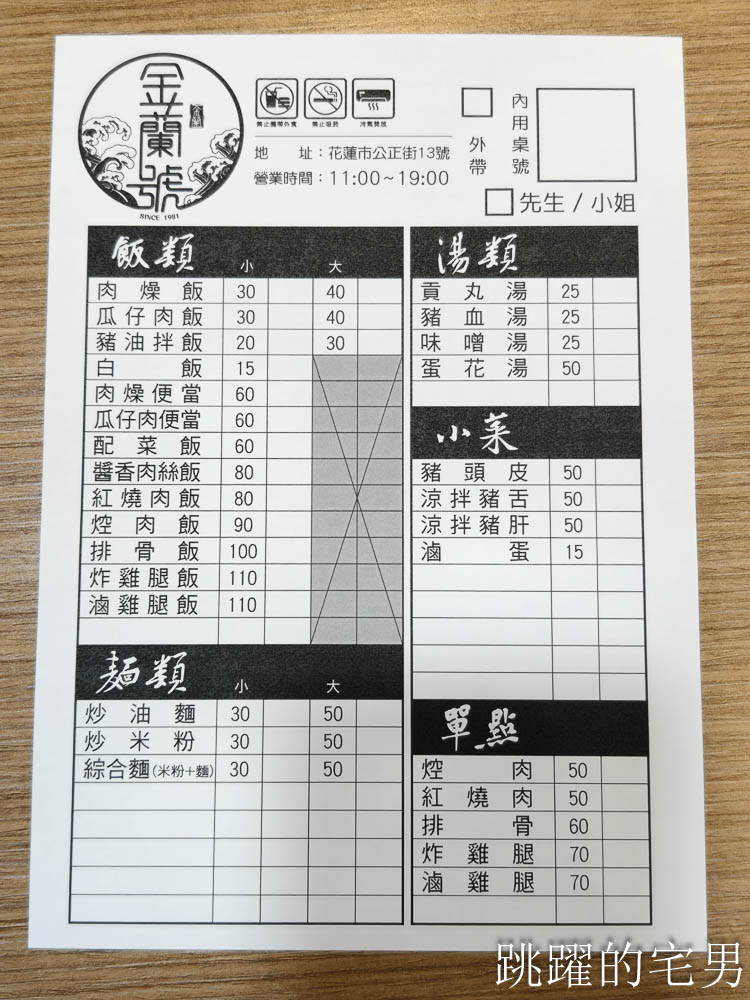 金蘭號
SINCE 1981
禁止攜帶外食 禁止吸菸 冷氣開放
地 址：花蓮市公正街13號
營業時間：11:00～19:00
外帶
內用桌號
先生 / 小姐
飯類 小 大
肉燥飯 30 40
瓜仔肉飯 30 40
豬油拌飯 20 30
白飯 15
肉燥便當 60
瓜仔肉便當 60
配菜飯 60
醬香肉絲飯 80
紅燒肉飯 80
焢肉飯 90
排骨飯 100
炸雞腿飯 110
滷雞腿飯 110
麵類 小 大
炒油麵 30 50
炒米粉 30 50
綜合麵(米粉+麵) 30 50
湯類
貢丸湯 25
豬血湯 25
味噌湯 25
蛋花湯 50
小菜
豬頭皮 50
涼拌豬舌 50
涼拌豬肝 50
滷蛋 15
單點
焢肉 50
紅燒肉 50
排骨 60
炸雞腿 70
滷雞腿 70
跳躍的宅男